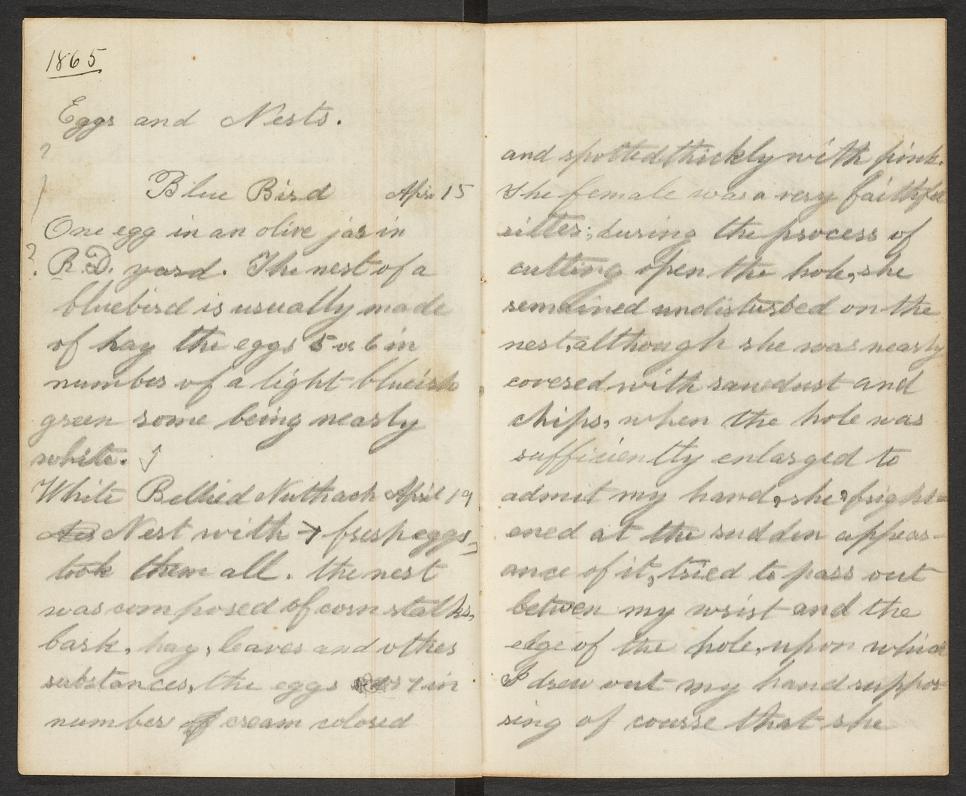 1865
Eggs and Nests.
?
Blue Bird Apr. 15
One egg in an olive jar in
? R.D. yard. The nest of a
bluebird is usually made
of hay the eggs 5 or 6 in
number of a light blueish
green some being nearly
white.
White Bellied Nuthach April 19
Nest with 7 fresh eggs,
took them all. the nest
was composed of corn stalks,
bark, hay, leaves and other
substances, the eggs 7 in
number of cream colored
and spotted thickly with pink.
The female was a very faithful
sitter; during the process of
cutting open the hole, she
remained undisturbed on the
nest, although she was nearly
covered with sawdust and
chips, when the hole was
sufficiently enlarged to
admit my hand, she, fright-
ened at the sudden appear-
ance of it, tried to pass out
between my wrist and the
edge of the hole, upon which
I drew out my hand suppo-
sing of course that she